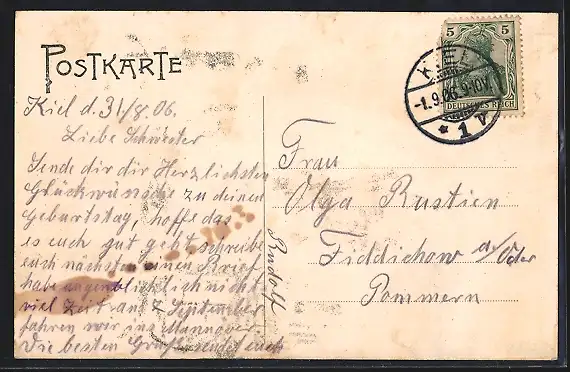 POSTKARTE
Kiel d. 31/8. 06.
Liebe Schwester
Sende dir dir Herzlichsten
Glückwünsche zu deinen
Geburtstag, hoffe das
es euch gut geht schreibe
euch nächsten einen Brief
habe augenblicklich nicht
viel Zeit am September
fahren wir ins Mannöver
Die besten Grüße sendet euch
Rudolf
5 5
DEUTSCHES REICH
KIEL
-1.9.06. 9-10V.
* 1 v
Frau
Olga Rustien
Fiddichow a/Oder
Pommern